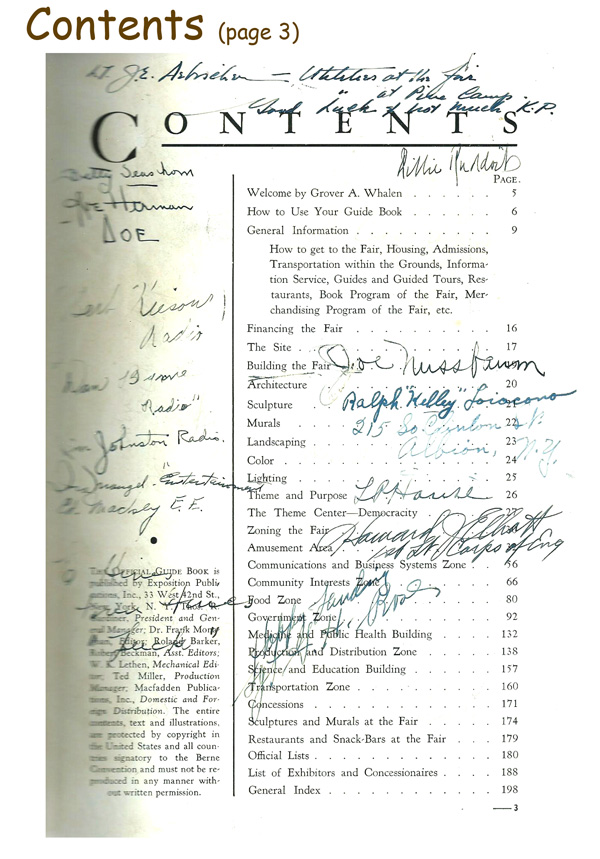 Contents (page 3)
Utilities at the fair
at Pine Camp
Good Luck & not much K.P.
CONTENTS
PAGE.
Welcome by Grover A. Whalen . . . . . . 5
How to Use Your Guide Book . . . . . . 6
General Information . . . . . . . . . 9
How to get to the Fair, Housing, Admissions,
Transportation within the Grounds, Informa-
tion Service, Guides and Guided Tours, Res-
taurants, Book Program of the Fair, Mer-
chandising Program of the Fair, etc.
Financing the Fair . . . . . . . . . . 16
The Site . . . . . . . . . . . . 17
Building the Fair
Joe Nussbaum
Architecture . . . . . . . . . . . 20
Sculpture . . . . . . . . . . . . 21
Ralph "Kelley" Loiacono
Murals . . . . . . . . . . . . . 22
215 So. Clinton St.
Landscaping . . . . . . . . . . . 23
Albion, N.Y.
Color . . . . . . . . . . . . . 24
Lighting . . . . . . . . . . . . 25
Theme and Purpose . . . . . . . . . 26
The Theme Center—Democracity . . . . . 27
Zoning the Fair
Howard J. Elliott
Amusement Area
1st Lt. Corps of Eng
Communications and Business Systems Zone . . 56
Community Interests Zone . . . . . . . 66
Food Zone . . . . . . . . . . . . 80
Government Zone . . . . . . . . . . 92
Medicine and Public Health Building . . . . 132
Production and Distribution Zone . . . . . 138
Science and Education Building . . . . . 157
Transportation Zone . . . . . . . . . 160
Concessions . . . . . . . . . . . 171
Sculptures and Murals at the Fair . . . . . 174
Restaurants and Snack-Bars at the Fair . . . 179
Official Lists . . . . . . . . . . . 180
List of Exhibitors and Concessionaires . . . . 188
General Index . . . . . . . . . . . 198
Betty Seashom
Joe Herman
DOE
Radio
Radio"
Jim Johnston Radio.
"Entertainment
Ed Mackley E.E.
THE OFFICIAL GUIDE BOOK is
published by Exposition Publi-
cations, Inc., 33 West 42nd St.,
New York, N. Y.
President and Gen-
eral Manager; Dr. Frank
Editor; Roland Barker,
Robert Beckman, Asst. Editors;
W. K. Lethen, Mechanical Edi-
tor; Ted Miller, Production
Manager; Macfadden Publica-
tions, Inc., Domestic and For-
eign Distribution. The entire
contents, text and illustrations,
are protected by copyright in
the United States and all coun-
tries signatory to the Berne
Convention and must not be re-
produced in any manner with-
out written permission.
3